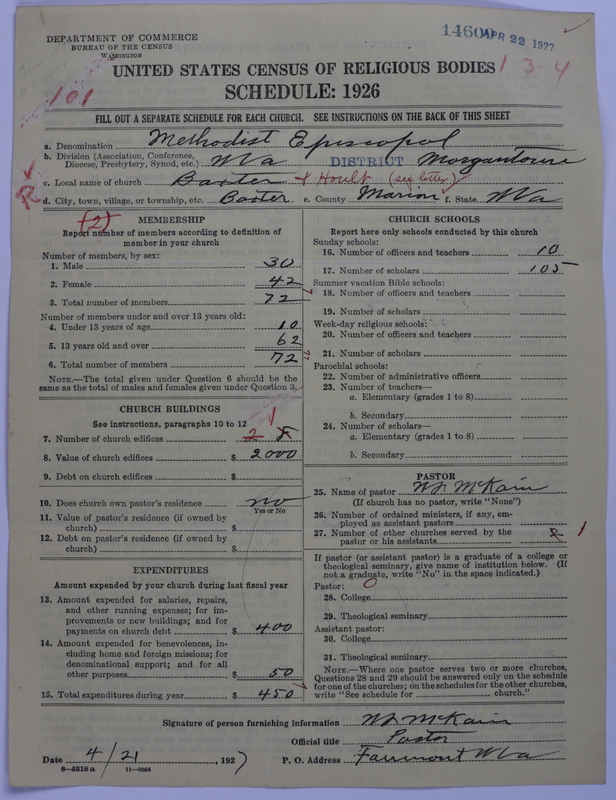 14600 APR 22 1927
DEPARTMENT OF COMMERCE
BUREAU OF THE CENSUS
WASHINGTON
UNITED STATES CENSUS OF RELIGIOUS BODIES 1 3-4
101 SCHEDULE: 1926
FILL OUT A SEPARATE SCHEDULE FOR EACH CHURCH. SEE INSTRUCTIONS ON THE BACK OF THIS SHEET
a. Denomination Methodist Episcopal
b. Division (Association, Conference, Diocese, Presbytery, Synod, etc.) W Va DISTRICT Morgantown
c. Local name of church Baxter & Hoult (see letter)
d. City, town, village, or township, etc. Baxter e. County Marion f. State W Va
(2)
MEMBERSHIP
Report number of members according to definition of
member in your church
Number of members, by sex:
1. Male 30
2. Female 42
3. Total number of members 72
Number of members under and over 13 years old:
4. Under 13 years of age 10
5. 13 years old and over 62
6. Total number of members 72
NOTE.—The total given under Question 6 should be the
same as the total of males and females given under Question 3.
CHURCH BUILDINGS
See instructions, paragraphs 10 to 12
7. Number of church edifices 2 1
8. Value of church edifices $ 2000
9. Debt on church edifices $
10. Does church own pastor's residence no
Yes or No
11. Value of pastor's residence (if owned by
church) $
12. Debt on pastor's residence (if owned by
church) $
EXPENDITURES
Amount expended by your church during last fiscal year
13. Amount expended for salaries, repairs,
and other running expenses; for im-
provements or new buildings; and for
payments on church debt $ 400
14. Amount expended for benevolences, in-
cluding home and foreign missions; for
denominational support; and for all
other purposes $ 50
15. Total expenditures during year $ 450
CHURCH SCHOOLS
Report here only schools conducted by this church
Sunday schools:
16. Number of officers and teachers 10
17. Number of scholars 105
Summer vacation Bible schools:
18. Number of officers and teachers
19. Number of scholars
Week-day religious schools:
20. Number of officers and teachers
21. Number of scholars
Parochial schools:
22. Number of administrative officers
23. Number of teachers—
a. Elementary (grades 1 to 8)
b. Secondary
24. Number of scholars—
a. Elementary (grades 1 to 8)
b. Secondary
PASTOR
25. Name of pastor McKain
(If church has no pastor, write "None")
26. Number of ordained ministers, if any, em-
ployed as assistant pastors
27. Number of other churches served by the
pastor or his assistants 1
If pastor (or assistant pastor) is a graduate of a college or
theological seminary, give name of institution below. (If
not a graduate, write "No" in the space indicated.)
Pastor: 0
28. College
29. Theological seminary
Assistant pastor:
30. College
31. Theological seminary
NOTE.—Where one pastor serves two or more churches,
Questions 28 and 29 should be answered only on the schedule
for one of the churches; on the schedules for the other churches,
write "See schedule for church."
Signature of person furnishing information McKain
Official title Pastor
Date 4/21, 1927 P. O. Address Fairmont W Va
8—5518a 11—9554